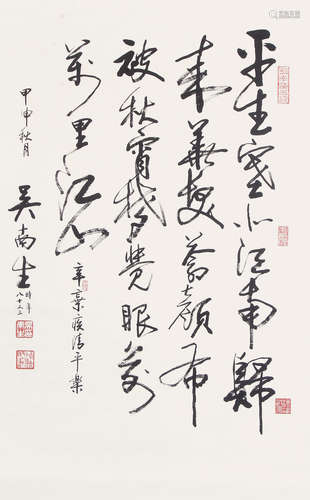 平生塞北江南歸
來華髮蒼顏布
被秋宵夢覺眼前
萬里江山
辛棄疾清平樂
甲申秋月
吳南生
時年
八十又三